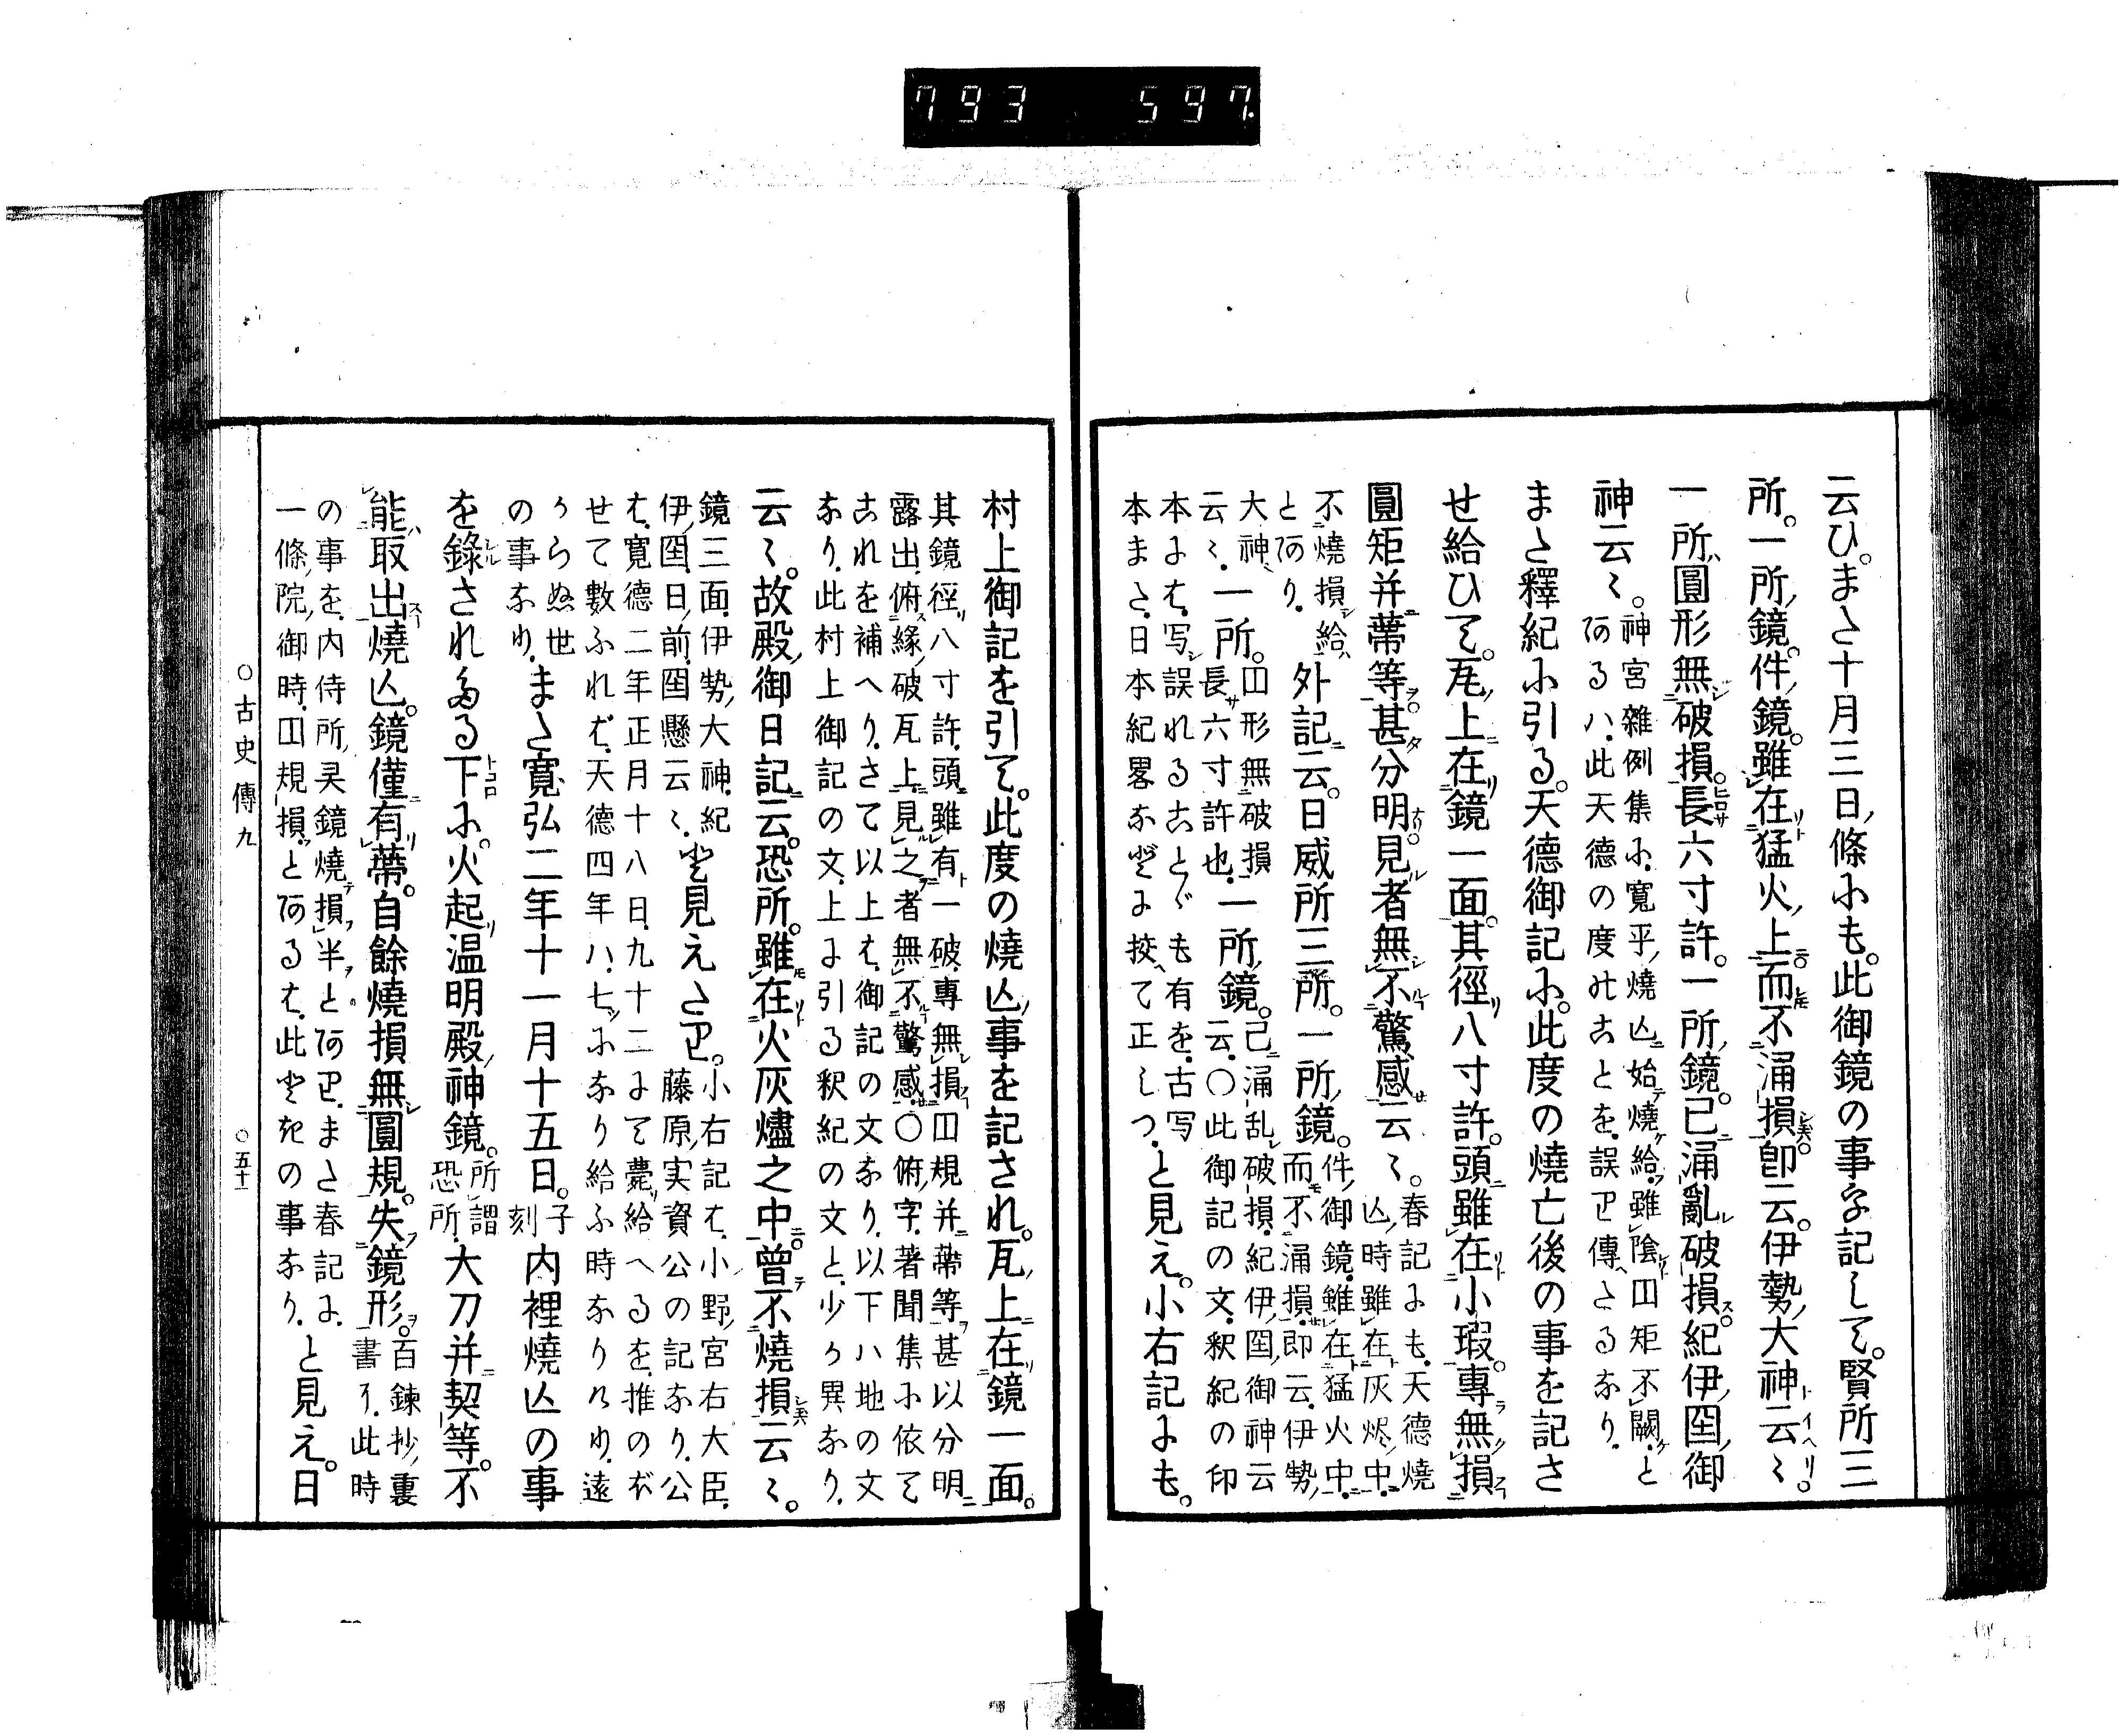 793 597
云ひ。また十月三日ノ條にも。此御鏡の事を記して。賢所三
所。一所ノ鏡。件ノ鏡。雖在猛火ノ上而不涌損。卽云。伊勢ノ大神云々
一所ハ圓形無破損。長六寸許。一所ノ鏡。已涌亂破損。紀伊ノ國ノ御
神云々。
神宮雜例集に。寬平ノ燒亡ニ始テ燒給。雖陰円矩不闕と
あるハ。此天德の度のことを。誤り傳へたるなり。
また釋紀に引る。天德御記に。此度の燒亡後の事を記さ
せ給ひて。瓦ノ上在鏡一面。其徑八寸許。頭雖在小瑕。專無損
圓矩并蔕等甚分明。見者無不驚感云々。
春記にも。天德燒
亡ノ時雖在灰烬ノ中。
不燒損給
とあり。
外記云。日威所三所。一所ノ鏡。
件ノ御鏡。雖在猛火中。
而不涌損。即云。伊勢ノ
大神。一所。円形無破損
云々。一所。長六寸許也。一所ノ鏡。
已涌乱破損。紀伊ノ国ノ御神云
云。〇此御記の文。釈紀の印
本には。写誤れることゞも有を。古写
本また。日本紀畧などに挍へて正しつ。
と見え。小右記にも。
村上御記を引て。此度の燒亡ノ事を記され。瓦ノ上在鏡一面。
其鏡徑八寸許。頭雖有一破。專無損円規并蔕等甚以分明
露出。俯緣破瓦上。見之者無不驚感。〇俯字。著聞集に依て
これを補へり。さて以上は。御記の文なり。以下ハ地の文
なり。此村上御記の文。上に引る釈紀の文と。少か異なり。
云々。故殿ノ御日記云。恐所。雖在火灰燼之中。曾不燒損云々。
鏡三面。伊勢ノ大神。紀
伊ノ国。日ノ前。国懸云々。
と見えたり。
小右記は。小野ノ宮右大臣。
藤原ノ実資公の記なり。公
は。寬德二年正月十八日。九十二にて薨給へるを。推のぼ
せて數ふれば。天德四年ハ。七ツになり給ふ時なりけり。遠
からぬ世
の事なり。
また寬弘二年十一月十五日。
子
刻
内裡燒亡の事
を錄されたる下に。火起温明殿。神鏡。
所謂
恐所。
大刀并契等。不
能取出燒亡。鏡僅有蔕。自餘燒損無圓規。失鏡形。
百鍊抄ノ裏
書に。此時
の事を。内侍所ノ灵鏡燒損半とあり。また春記に。
一條ノ院ノ御時。円規損とあるは。此ときの事なり。
と見え。日
〇古史傳九
〇五十一